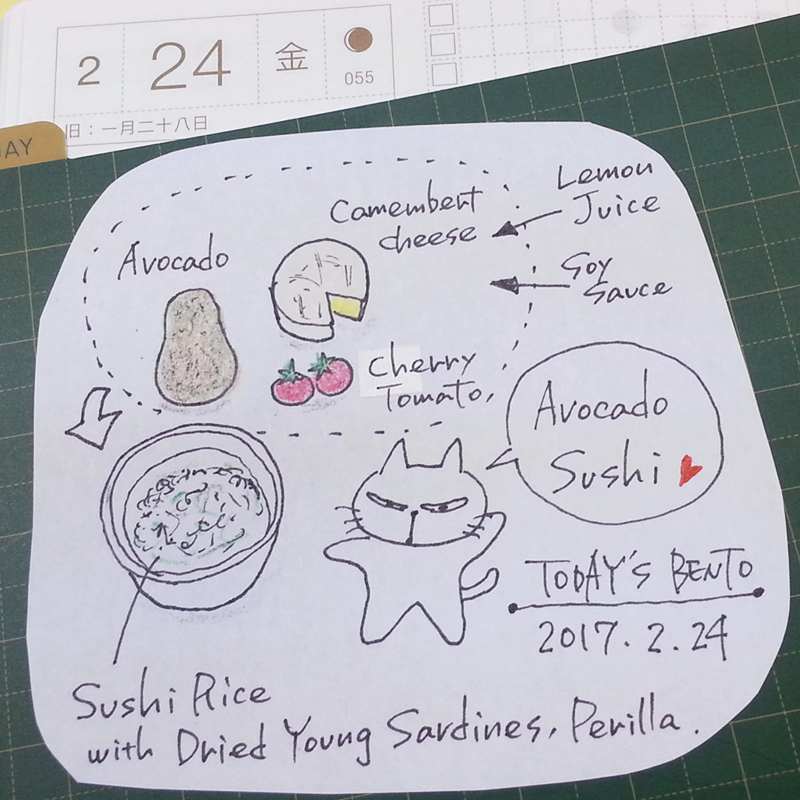 2 24 金
055
旧：一月二十八日
AY
Lemon
Juice
Camembert
cheese
Avocado
Soy
Sauce
cherry
Tomato,
Avocado
Sushi
TODAY'S BENTO
2017.2.24
Sushi Rice
with Dried Young Sardines, Perilla.